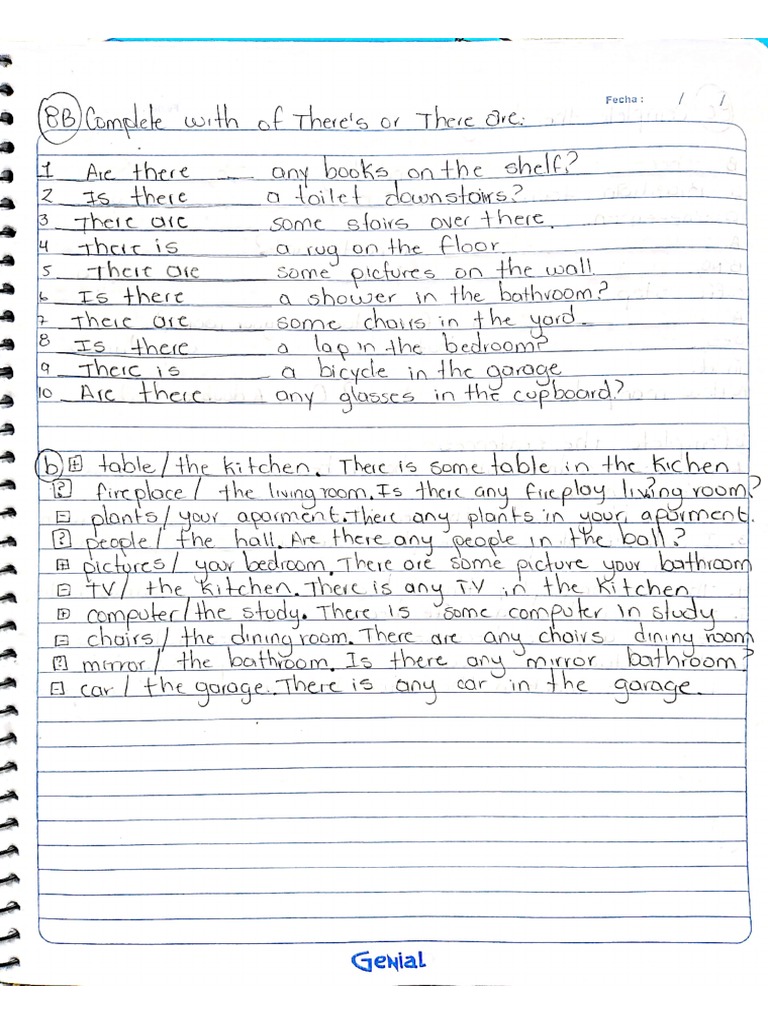 Fecha: / /
8B Complete with of There's or There are.
1 Are there any books on the shelf?
2 Is there a toilet downstairs?
3 There are some stairs over there.
4 There is a rug on the floor.
5 There are some pictures on the wall
6 Is there a shower in the bathroom?
7 There are some chairs in the yard.
8 Is there a lap in the bedroom?
9 There is a bicycle in the garage
10 Are there any glasses in the cupboard?
b + table / the kitchen. There is some table in the kichen
? fireplace / the living room. Is there any fireploy living room?
- plants / your aparment. There any plants in your aparment.
? people / the hall. Are there any people in the ball?
+ pictures / your bedroom. There are some picture your bathroom
- TV / the kitchen. There is any TV in the kitchen
+ computer / the study. There is some computer in study
- chairs / the dining room. There are any chairs dining room
? mirror / the bathroom. Is there any mirror bathroom?
- car / the garage. There is any car in the garage.
GENIAL